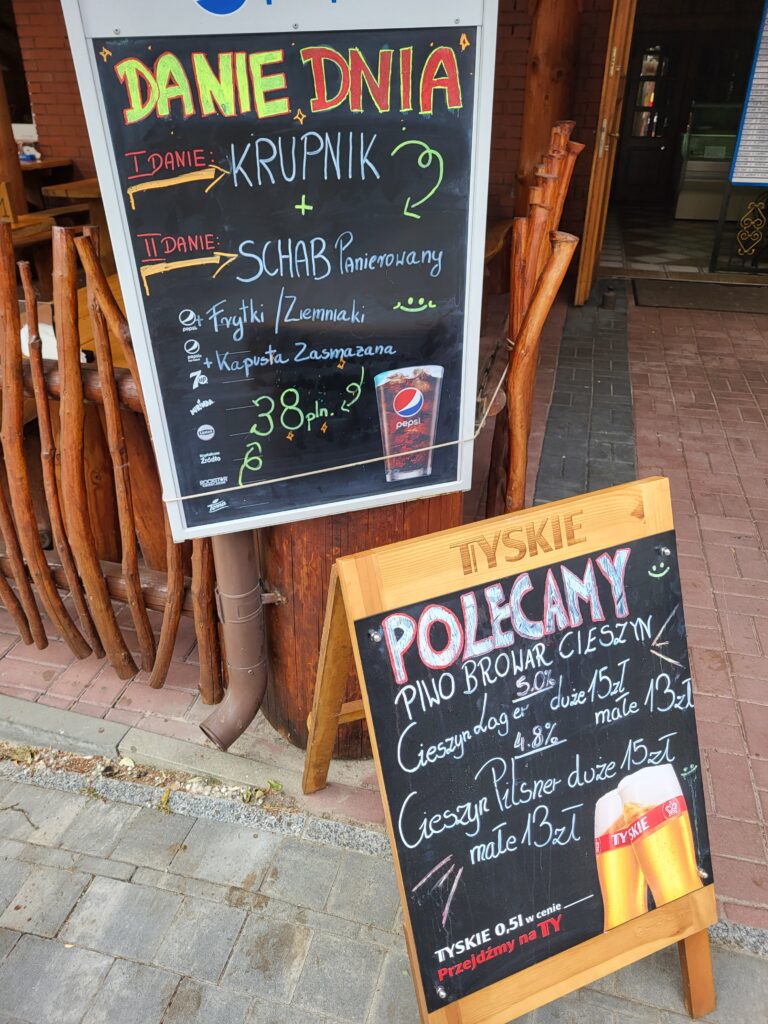 DANIE DNIA
I DANIE: KRUPNIK
+
II DANIE: SCHAB Panierowany
pepsi + Frytki / Ziemniaki
+ Kapusta Zasmażana
7UP
38 pln.
pepsi
MIRINDA
Lipton
ROCKSTAR
Toma
TYSKIE
POLECAMY
PIWO BROWAR CIESZYN
5.0%
Cieszyn Lager duże 15zł
małe 13zł
4.8%
Cieszyn Pilsner duże 15zł
małe 13zł
TYSKIE
TYSKIE 0,5l w cenie
Przejdźmy na TY